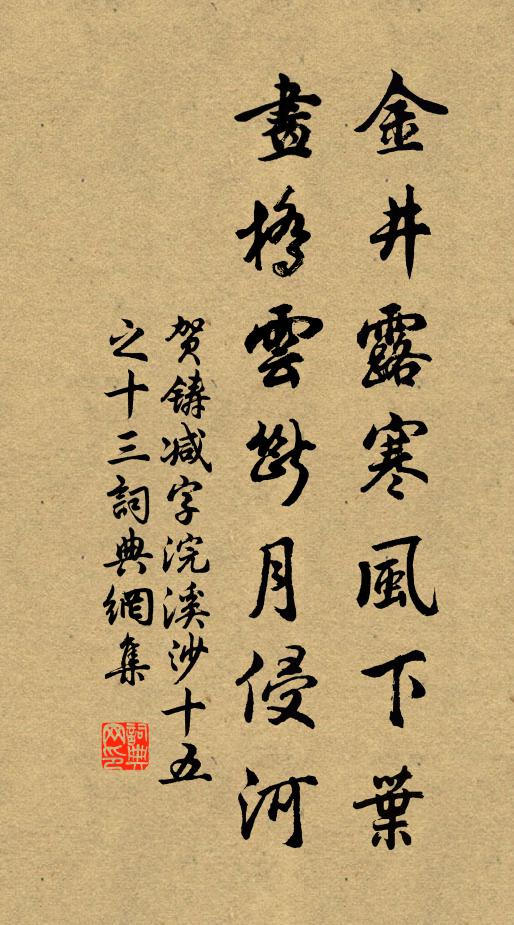 金井露寒風下葉
畫橋雲斷月侵河
贺铸减字浣溪沙十五
之十三詞典網集
詞典网印